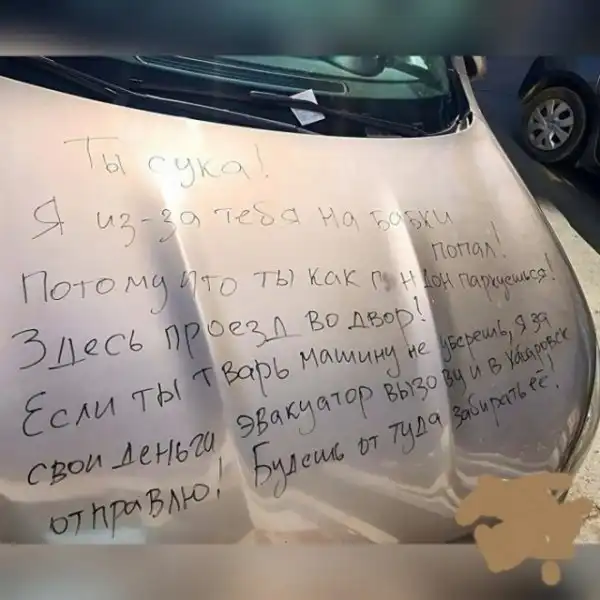 Ты сука!
Я из-за тебя на бабки попал!
Потому что ты как гондон паркуешься!
Здесь проезд во двор!
Если ты тварь машину не уберешь, я за
свои деньги эвакуатор вызову и в Хабаровск
отправлю! Будешь от туда забирать её!